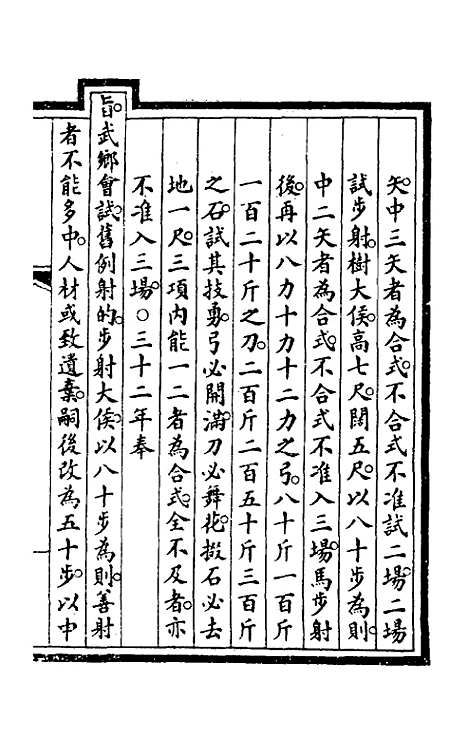 矢。中三矢者為合式。不合式不准試二場。二場
試步射。樹大侯。高七尺。闊五尺。以八十步為則。
中二矢者為合式。不合式不准入三場。馬步射
後。再以八力十力十二力之弓。八十斤一百斤
一百二十斤之刀。二百斤二百五十斤三百斤
之石。試其技勇。弓必開滿。刀必舞花。掇石必去
地一尺。三項内能一二者為合式。全不及者。亦
不准入三場。○三十二年奉
旨。武鄉會試。舊例射的。步射大侯。以八十步為則。善射
者不能多中。人材或致遺棄。嗣後改為五十步。以中